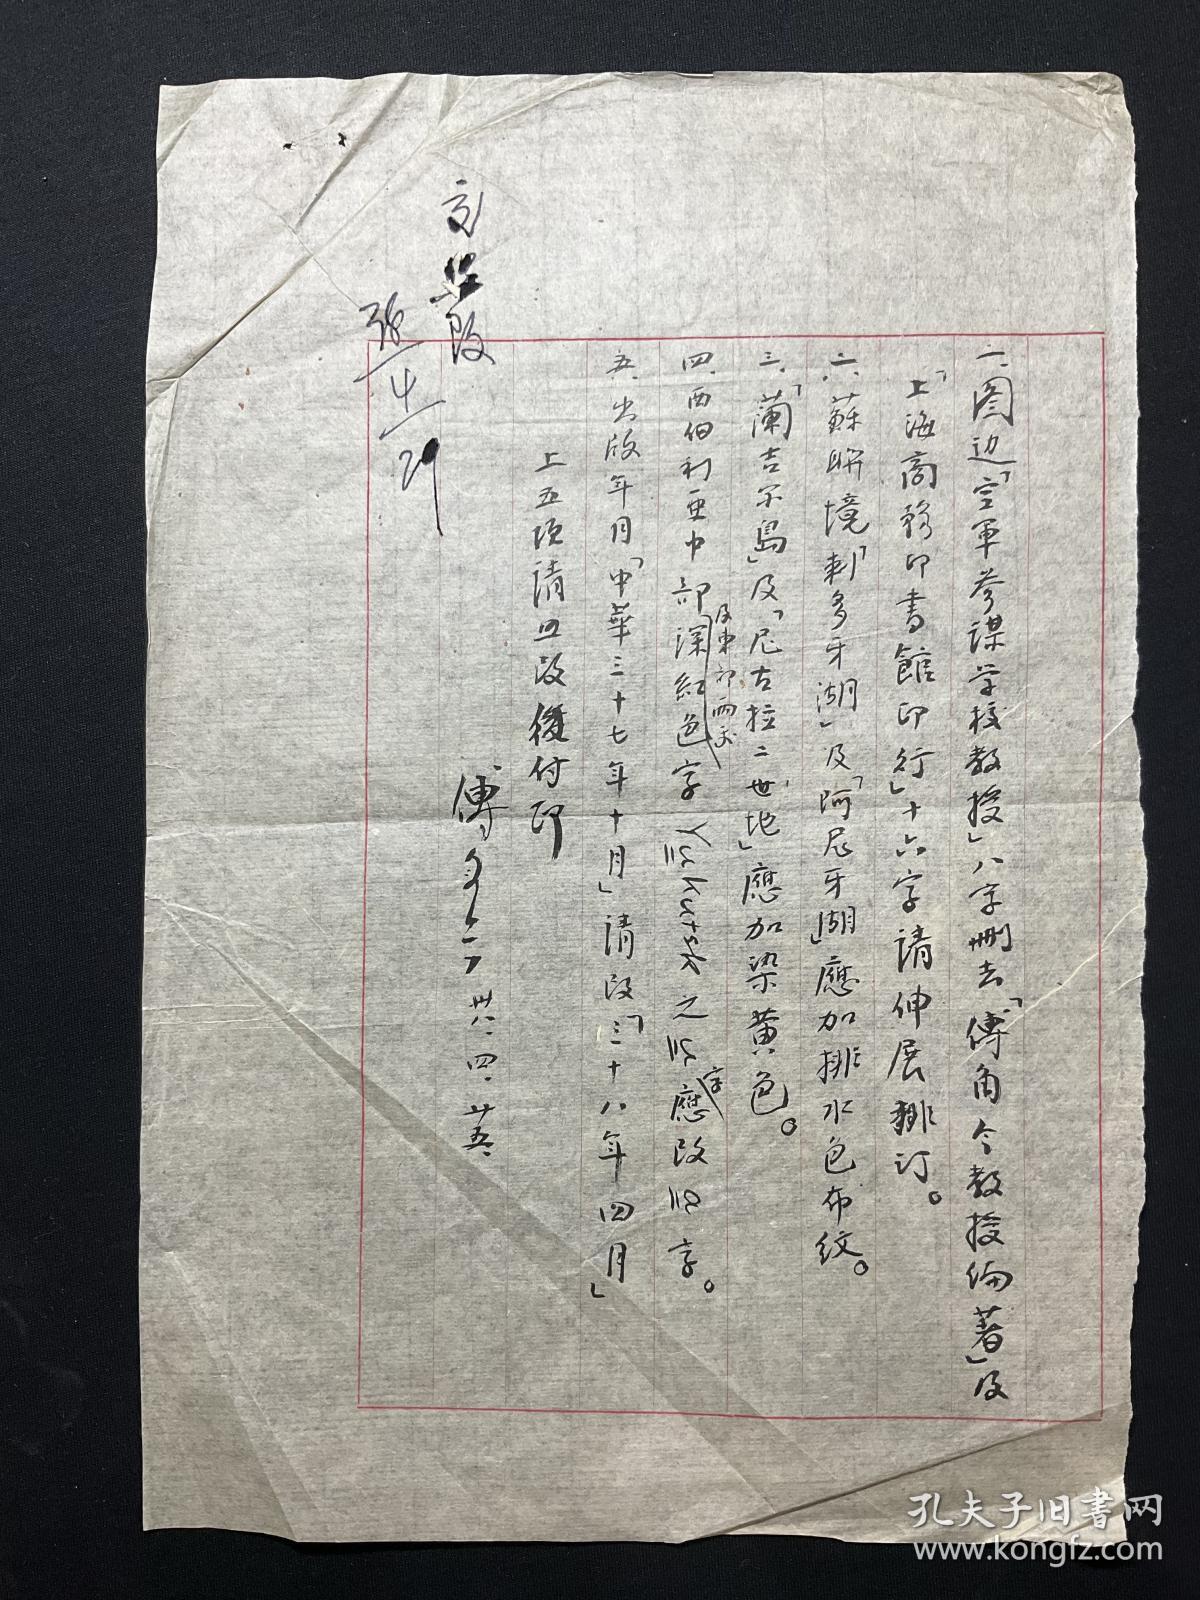 一、图边「空軍參謀学校教授」八字删去「傅角今教授编著」及
「上海商務印書館印行」十六字请伸展排订。
二、蘇联境「刺多牙湖」及「阿尼牙湖」應加排水色布纹。
三、「蘭吉尔島」及「尼古拉二世地」應加染黄色。
四、西伯利亚中部深紅色字 Yakutsk 之 應改 字。
及東部兩求
字
五、出版年月「中華三十七年十月」请改「三十八年四月」
上五项请照改後付印
傅角今 卅八、四、廿五
照改
张 4/29
孔夫子旧書网
www.kongfz.com